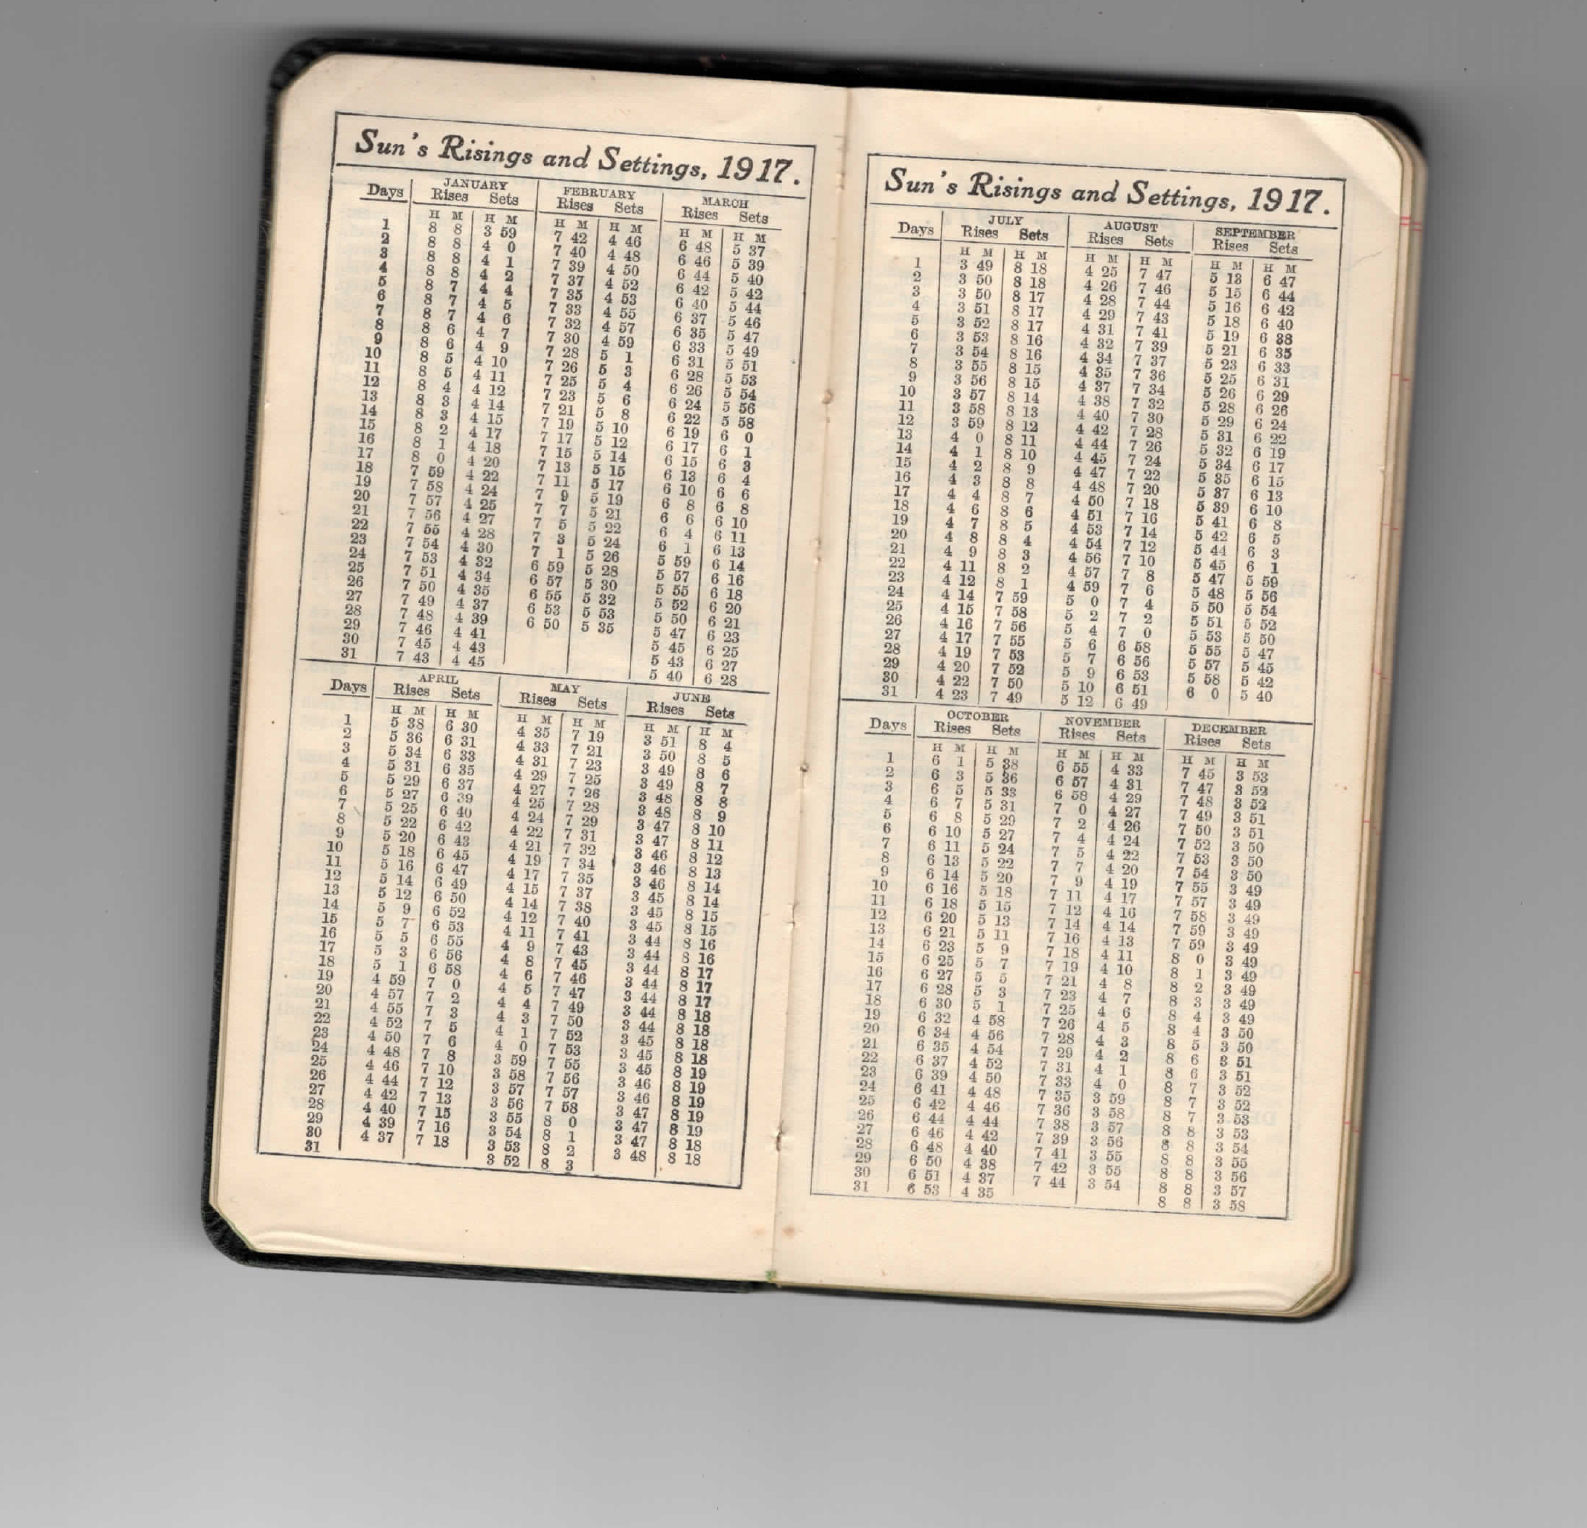 Sun's Risings and Settings, 1917.
Days JANUARY FEBRUARY MARCH
Rises Sets Rises Sets Rises Sets
H M H M H M H M H M H M
1 8 8 3 59 7 42 4 46 6 48 5 37
2 8 8 4 0 7 40 4 48 6 46 5 39
3 8 8 4 1 7 39 4 50 6 44 5 40
4 8 8 4 2 7 37 4 52 6 42 5 42
5 8 7 4 4 7 35 4 53 6 40 5 44
6 8 7 4 5 7 33 4 55 6 37 5 46
7 8 7 4 6 7 32 4 57 6 35 5 47
8 8 6 4 7 7 30 4 59 6 33 5 49
9 8 6 4 9 7 28 5 1 6 31 5 51
10 8 5 4 10 7 26 5 3 6 28 5 53
11 8 5 4 11 7 25 5 4 6 26 5 54
12 8 4 4 12 7 23 5 6 6 24 5 56
13 8 3 4 14 7 21 5 8 6 22 5 58
14 8 3 4 15 7 19 5 10 6 19 6 0
15 8 2 4 17 7 17 5 12 6 17 6 1
16 8 1 4 18 7 15 5 14 6 15 6 3
17 8 0 4 20 7 13 5 15 6 13 6 4
18 7 59 4 22 7 11 5 17 6 10 6 6
19 7 58 4 24 7 9 5 19 6 8 6 8
20 7 57 4 25 7 7 5 21 6 6 6 10
21 7 56 4 27 7 5 5 22 6 4 6 11
22 7 55 4 28 7 3 5 24 6 1 6 13
23 7 54 4 30 7 1 5 26 5 59 6 14
24 7 53 4 32 6 59 5 28 5 57 6 16
25 7 51 4 34 6 57 5 30 5 55 6 18
26 7 50 4 35 6 55 5 32 5 52 6 20
27 7 49 4 37 6 53 5 53 5 50 6 21
28 7 48 4 39 6 50 5 35 5 47 6 23
29 7 46 4 41 5 45 6 25
30 7 45 4 43 5 43 6 27
31 7 43 4 45 5 40 6 28
Days APRIL MAY JUNE
Rises Sets Rises Sets Rises Sets
H M H M H M H M H M H M
1 5 38 6 30 4 35 7 19 3 51 8 4
2 5 36 6 31 4 33 7 21 3 50 8 5
3 5 34 6 33 4 31 7 23 3 49 8 6
4 5 31 6 35 4 29 7 25 3 49 8 7
5 5 29 6 37 4 27 7 26 3 48 8 8
6 5 27 6 39 4 25 7 28 3 48 8 9
7 5 25 6 40 4 24 7 29 3 47 8 10
8 5 22 6 42 4 22 7 31 3 47 8 11
9 5 20 6 43 4 21 7 32 3 46 8 12
10 5 18 6 45 4 19 7 34 3 46 8 13
11 5 16 6 47 4 17 7 35 3 46 8 14
12 5 14 6 49 4 15 7 37 3 45 8 14
13 5 12 6 50 4 14 7 38 3 45 8 15
14 5 9 6 52 4 12 7 40 3 45 8 15
15 5 7 6 53 4 11 7 41 3 44 8 16
16 5 5 6 55 4 9 7 43 3 44 8 16
17 5 3 6 56 4 8 7 45 3 44 8 17
18 5 1 6 58 4 6 7 46 3 44 8 17
19 4 59 7 0 4 5 7 47 3 44 8 17
20 4 57 7 2 4 4 7 49 3 44 8 18
21 4 55 7 3 4 3 7 50 3 44 8 18
22 4 52 7 5 4 1 7 52 3 45 8 18
23 4 50 7 6 4 0 7 53 3 45 8 18
24 4 48 7 8 3 59 7 55 3 45 8 19
25 4 46 7 10 3 58 7 56 3 46 8 19
26 4 44 7 12 3 57 7 57 3 46 8 19
27 4 42 7 13 3 56 7 58 3 47 8 19
28 4 40 7 15 3 55 8 0 3 47 8 19
29 4 39 7 16 3 54 8 1 3 47 8 18
30 4 37 7 18 3 53 8 2 3 48 8 18
31 3 52 8 3
Sun's Risings and Settings, 1917.
Days JULY AUGUST SEPTEMBER
Rises Sets Rises Sets Rises Sets
H M H M H M H M H M H M
1 3 49 8 18 4 25 7 47 5 13 6 47
2 3 50 8 18 4 26 7 46 5 15 6 44
3 3 50 8 17 4 28 7 44 5 16 6 42
4 3 51 8 17 4 29 7 43 5 18 6 40
5 3 52 8 17 4 31 7 41 5 19 6 38
6 3 53 8 16 4 32 7 39 5 21 6 35
7 3 54 8 16 4 34 7 37 5 23 6 33
8 3 55 8 15 4 35 7 36 5 25 6 31
9 3 56 8 15 4 37 7 34 5 26 6 29
10 3 57 8 14 4 38 7 32 5 28 6 26
11 3 58 8 13 4 40 7 30 5 29 6 24
12 3 59 8 12 4 42 7 28 5 31 6 22
13 4 0 8 11 4 44 7 26 5 32 6 19
14 4 1 8 10 4 45 7 24 5 34 6 17
15 4 2 8 9 4 47 7 22 5 35 6 15
16 4 3 8 8 4 48 7 20 5 37 6 13
17 4 4 8 7 4 50 7 18 5 39 6 10
18 4 6 8 6 4 51 7 16 5 41 6 8
19 4 7 8 5 4 53 7 14 5 42 6 5
20 4 8 8 4 4 54 7 12 5 44 6 3
21 4 9 8 3 4 56 7 10 5 45 6 1
22 4 11 8 2 4 57 7 8 5 47 5 59
23 4 12 8 1 4 59 7 6 5 48 5 56
24 4 14 7 59 5 0 7 4 5 50 5 54
25 4 15 7 58 5 2 7 2 5 51 5 52
26 4 16 7 56 5 4 7 0 5 53 5 50
27 4 17 7 55 5 6 6 58 5 55 5 47
28 4 19 7 53 5 7 6 56 5 57 5 45
29 4 20 7 52 5 9 6 53 5 58 5 42
30 4 22 7 50 5 10 6 51 6 0 5 40
31 4 23 7 49 5 12 6 49
Days OCTOBER NOVEMBER DECEMBER
Rises Sets Rises Sets Rises Sets
H M H M H M H M H M H M
1 6 1 5 38 6 55 4 33 7 45 3 53
2 6 3 5 36 6 57 4 31 7 47 3 52
3 6 5 5 33 6 58 4 29 7 48 3 52
4 6 7 5 31 7 0 4 27 7 49 3 51
5 6 8 5 29 7 2 4 26 7 50 3 51
6 6 10 5 27 7 4 4 24 7 52 3 50
7 6 11 5 24 7 5 4 22 7 53 3 50
8 6 13 5 22 7 7 4 20 7 54 3 50
9 6 14 5 20 7 9 4 19 7 55 3 49
10 6 16 5 18 7 11 4 17 7 57 3 49
11 6 18 5 15 7 12 4 16 7 58 3 49
12 6 20 5 13 7 14 4 14 7 59 3 49
13 6 21 5 11 7 16 4 13 7 59 3 49
14 6 23 5 9 7 18 4 11 8 0 3 49
15 6 25 5 7 7 19 4 10 8 1 3 49
16 6 27 5 5 7 21 4 8 8 2 3 49
17 6 28 5 3 7 23 4 7 8 3 3 49
18 6 30 5 1 7 25 4 6 8 4 3 49
19 6 32 4 58 7 26 4 5 8 4 3 50
20 6 34 4 56 7 28 4 3 8 5 3 50
21 6 35 4 54 7 29 4 2 8 6 3 51
22 6 37 4 52 7 31 4 1 8 6 3 51
23 6 39 4 50 7 33 4 0 8 7 3 52
24 6 41 4 48 7 35 3 59 8 7 3 52
25 6 42 4 46 7 36 3 58 8 7 3 53
26 6 44 4 44 7 38 3 57 8 8 3 53
27 6 46 4 42 7 39 3 56 8 8 3 54
28 6 48 4 40 7 41 3 55 8 8 3 55
29 6 50 4 38 7 42 3 55 8 8 3 56
30 6 51 4 37 7 44 3 54 8 8 3 57
31 6 53 4 35 8 8 3 58